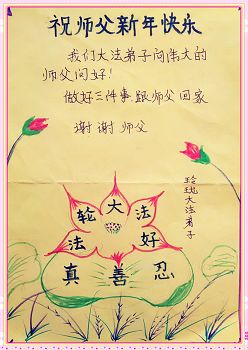 祝师父新年快乐
我们大法弟子向伟大的
师父问好!
做好三件事跟师父回家
谢谢师父
玲珑大法弟子
法轮大法好
真善忍